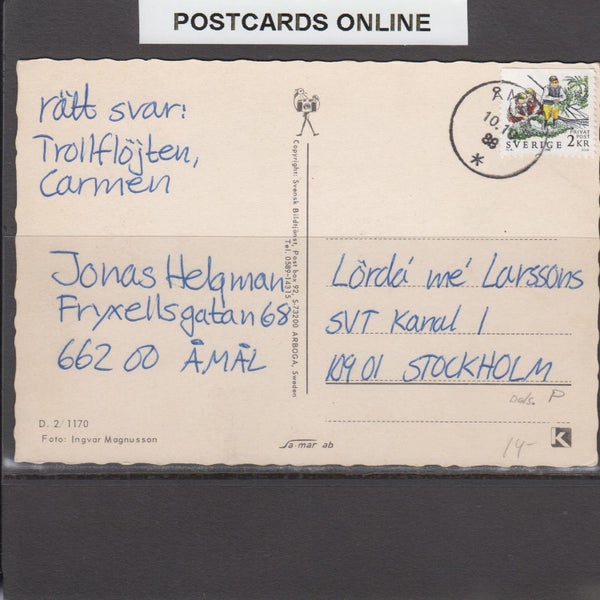 POSTCARDS ONLINE
rätt svar:
Trollflöjten,
Carmen
Jonas Helgman
Fryxellsgatan 68
662 00 ÅMÅL
D. 2/1170
Foto: Ingvar Magnusson
Copyright: Svensk Bildtjänst, Post box 92, S-73200 ARBOGA, Sweden
Tel. 0589-14315
Sa-mar ab
10.10
88
PRIVAT
POST
SVERIGE 2KR
Lördá mé Larssons
SVT Kanal 1
10901 STOCKHOLM
Dals. P
14-
K